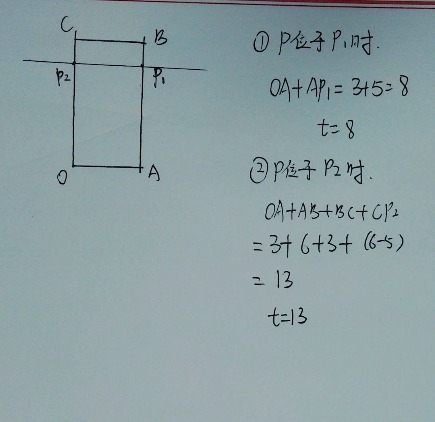 C
B
P₂
P₁
O
A
① P位于P₁时.
OA+AP₁=3+5=8
t=8
② P位于P₂时.
OA+AB+BC+CP₂
=3+6+3+(6-5)
=13
t=13